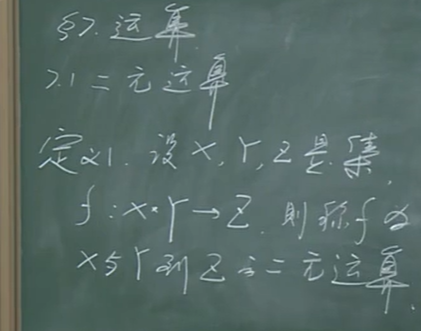 §7. 运算
7.1 二元运算
定义1. 设 X, Y, Z 是集,
f : X × Y → Z. 则称 f 为
X与Y到Z之二元运算.